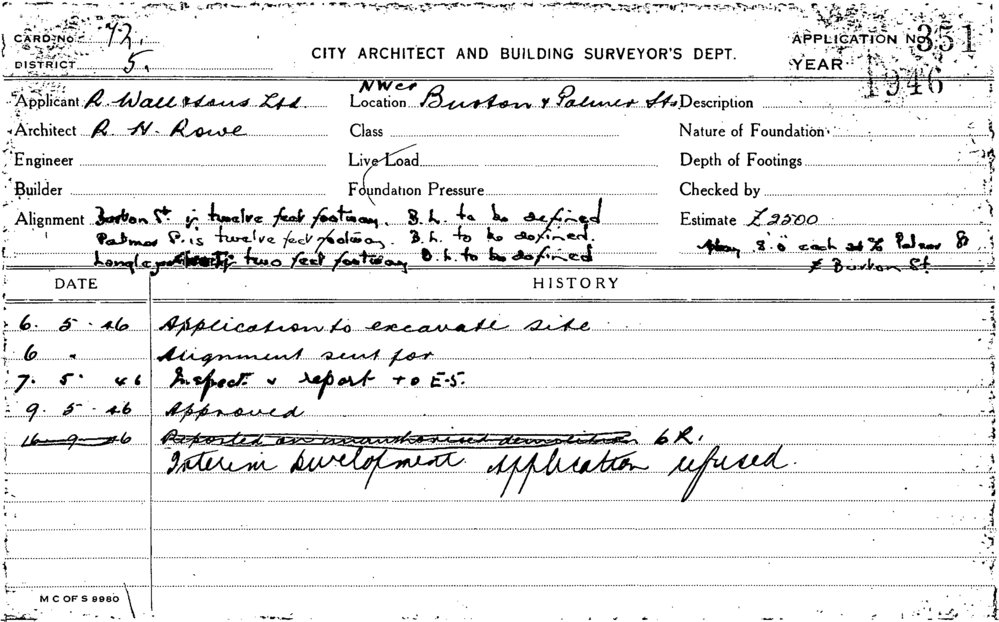 CARD No 72. APPLICATION No 351
DISTRICT 5. CITY ARCHITECT AND BUILDING SURVEYOR'S DEPT. YEAR 1946
Applicant R. Wall & Sons Ltd Location NW cr Burton & Palmer Sts Description
Architect R. H. Rowe Class Nature of Foundation
Engineer Live Load Depth of Footings
Builder Foundation Pressure Checked by
Alignment Burton St. is twelve feet footway. B.L. to be defined Estimate £2500
Palmer St. is twelve feet footway. B.L. to be defined 8.0 each Palmer St
two feet footway B.L. to be defined & Burton St.
DATE HISTORY
6. 5. 46 Application to excavate site
6 " Alignment sent for
7. 5. 46 Inspect. & report to E.S.
9. 5. 46 Approved
16 9 46 Reported on unauthorised demolition 6R.
Interim Development Application refused.
M C OF S 9980